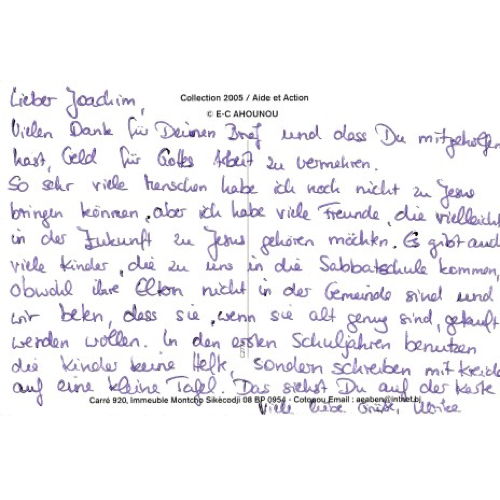 Lieber Joachim,
Collection 2005 / Aide et Action
© E·C AHOUNOU
Vielen Dank für Deinen Brief und dass Du mitgeholfen
hast, Geld für Gottes Arbeit zu vermehren.
So sehr viele Menschen habe ich noch nicht zu Jesus
bringen können, aber ich habe viele Freunde, die vielleicht
in der Zukunft zu Jesus gehören möchten. Es gibt auch
viele Kinder, die zu uns in die Sabbatschule kommen,
obwohl ihre Eltern nicht in der Gemeinde sind und
wir beten, dass sie, wenn sie alt genug sind, getauft
werden wollen. In den ersten Schuljahren benutzen
die Kinder keine Hefte, sondern schreiben mit Kreide
auf eine kleine Tafel. Das siehst Du auf der Karte
Carré 920, Immeuble Montcho Sikècodji 08 BP 0954 - Cotonou Email : aeaben@intnet.bj
Viele liebe Grüße, Ulrike